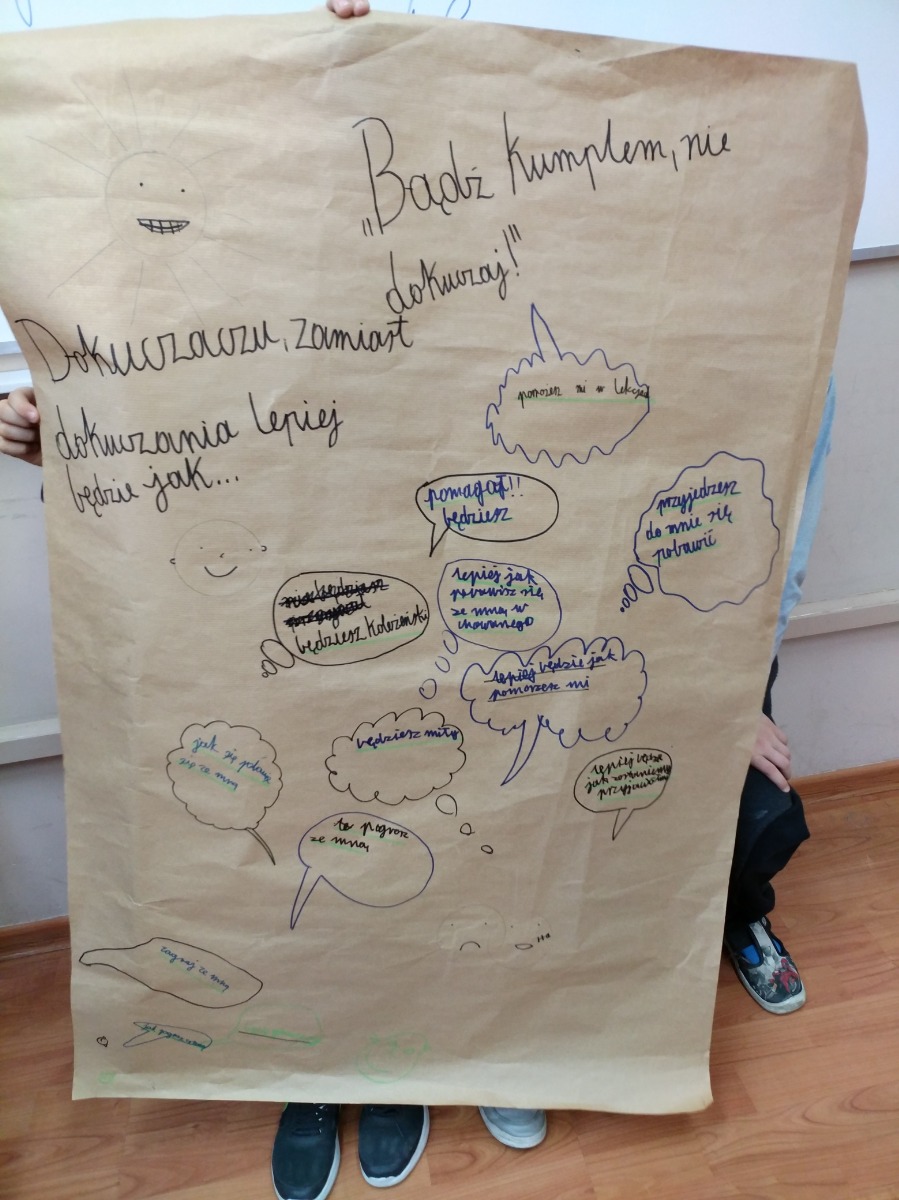 „Bądź kumplem, nie
dokuczaj!"
Dokuczaczu, zamiast
dokuczania lepiej
będzie jak...
pomożesz mi w lekcjach
pomagał!!
będziesz
przyjedziesz
do mnie się
pobawić
lepiej jak
pobawisz się
ze mną w
chowanego
będziesz koleżeński
lepiej będzie jak
pomorzesz mi
będziesz miły
jak się
się ze mną
lepiej będzie
jak
to pograsz
ze mną
zagraj ze mną